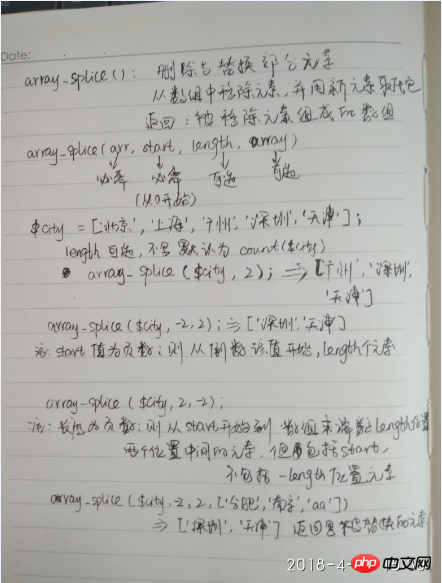 Date:
array_splice(): 删除与替换部分元素
从数组中移除元素，并用新元素取代它
返回：被移除元素组成的数组
array_splice(arr, start, length, array)
必需 必需 可选 可选
(从0开始)
$city = ['北京', '上海', '广州', '深圳', '天津'];
length 可选，不写默认为 count($city)
array_splice($city, 2); ⇒ ['广州', '深圳',
'天津']
array_splice($city, -2, 2); ⇒ ['深圳', '天津']
注: start 值为负数：则从倒数该值开始, length个元素
array_splice($city, 2, -2);
注: 长度为负数：则从start开始到 数组末端 length位置
两个位置中间的元素，但 包括start,
不包括 -length位置元素
array_splice($city, -2, 2, ['合肥', '南京', 'aa'])
⇒ ['深圳', '天津'] 返回 被替换的元素
2018-4-
php中文网